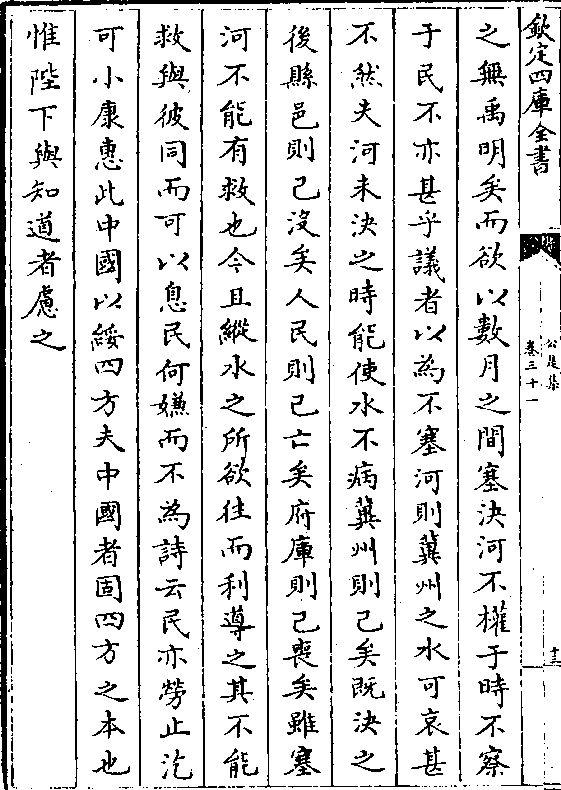 欽定四庫全書
公是集
卷三十一
十三
之無禹明矣而欲以數月之間塞決河不權于時不察
于民不亦甚乎議者以為不塞河則冀州之水可哀甚
不然夫河未決之時能使水不病冀州則已矣既決之
後縣邑則已沒矣人民則已亡矣府庫則已喪矣雖塞
河不能有救也今且縱水之所欲往而利導之其不能
救與彼同而可以息民何嫌而不為詩云民亦勞止汔
可小康惠此中國以綏四方夫中國者固四方之本也
惟陛下與知道者慮之